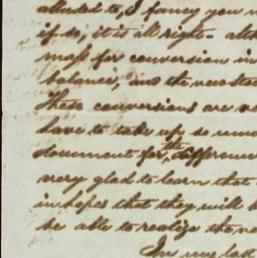 alluded to, I fancy you
if so, it is all right - alth
mass for conversion in
balances, and the new stoc
These conversions are
have to take up so
document for the difference
very glad to learn that
in hopes that they will b
be able to realize the
In my last